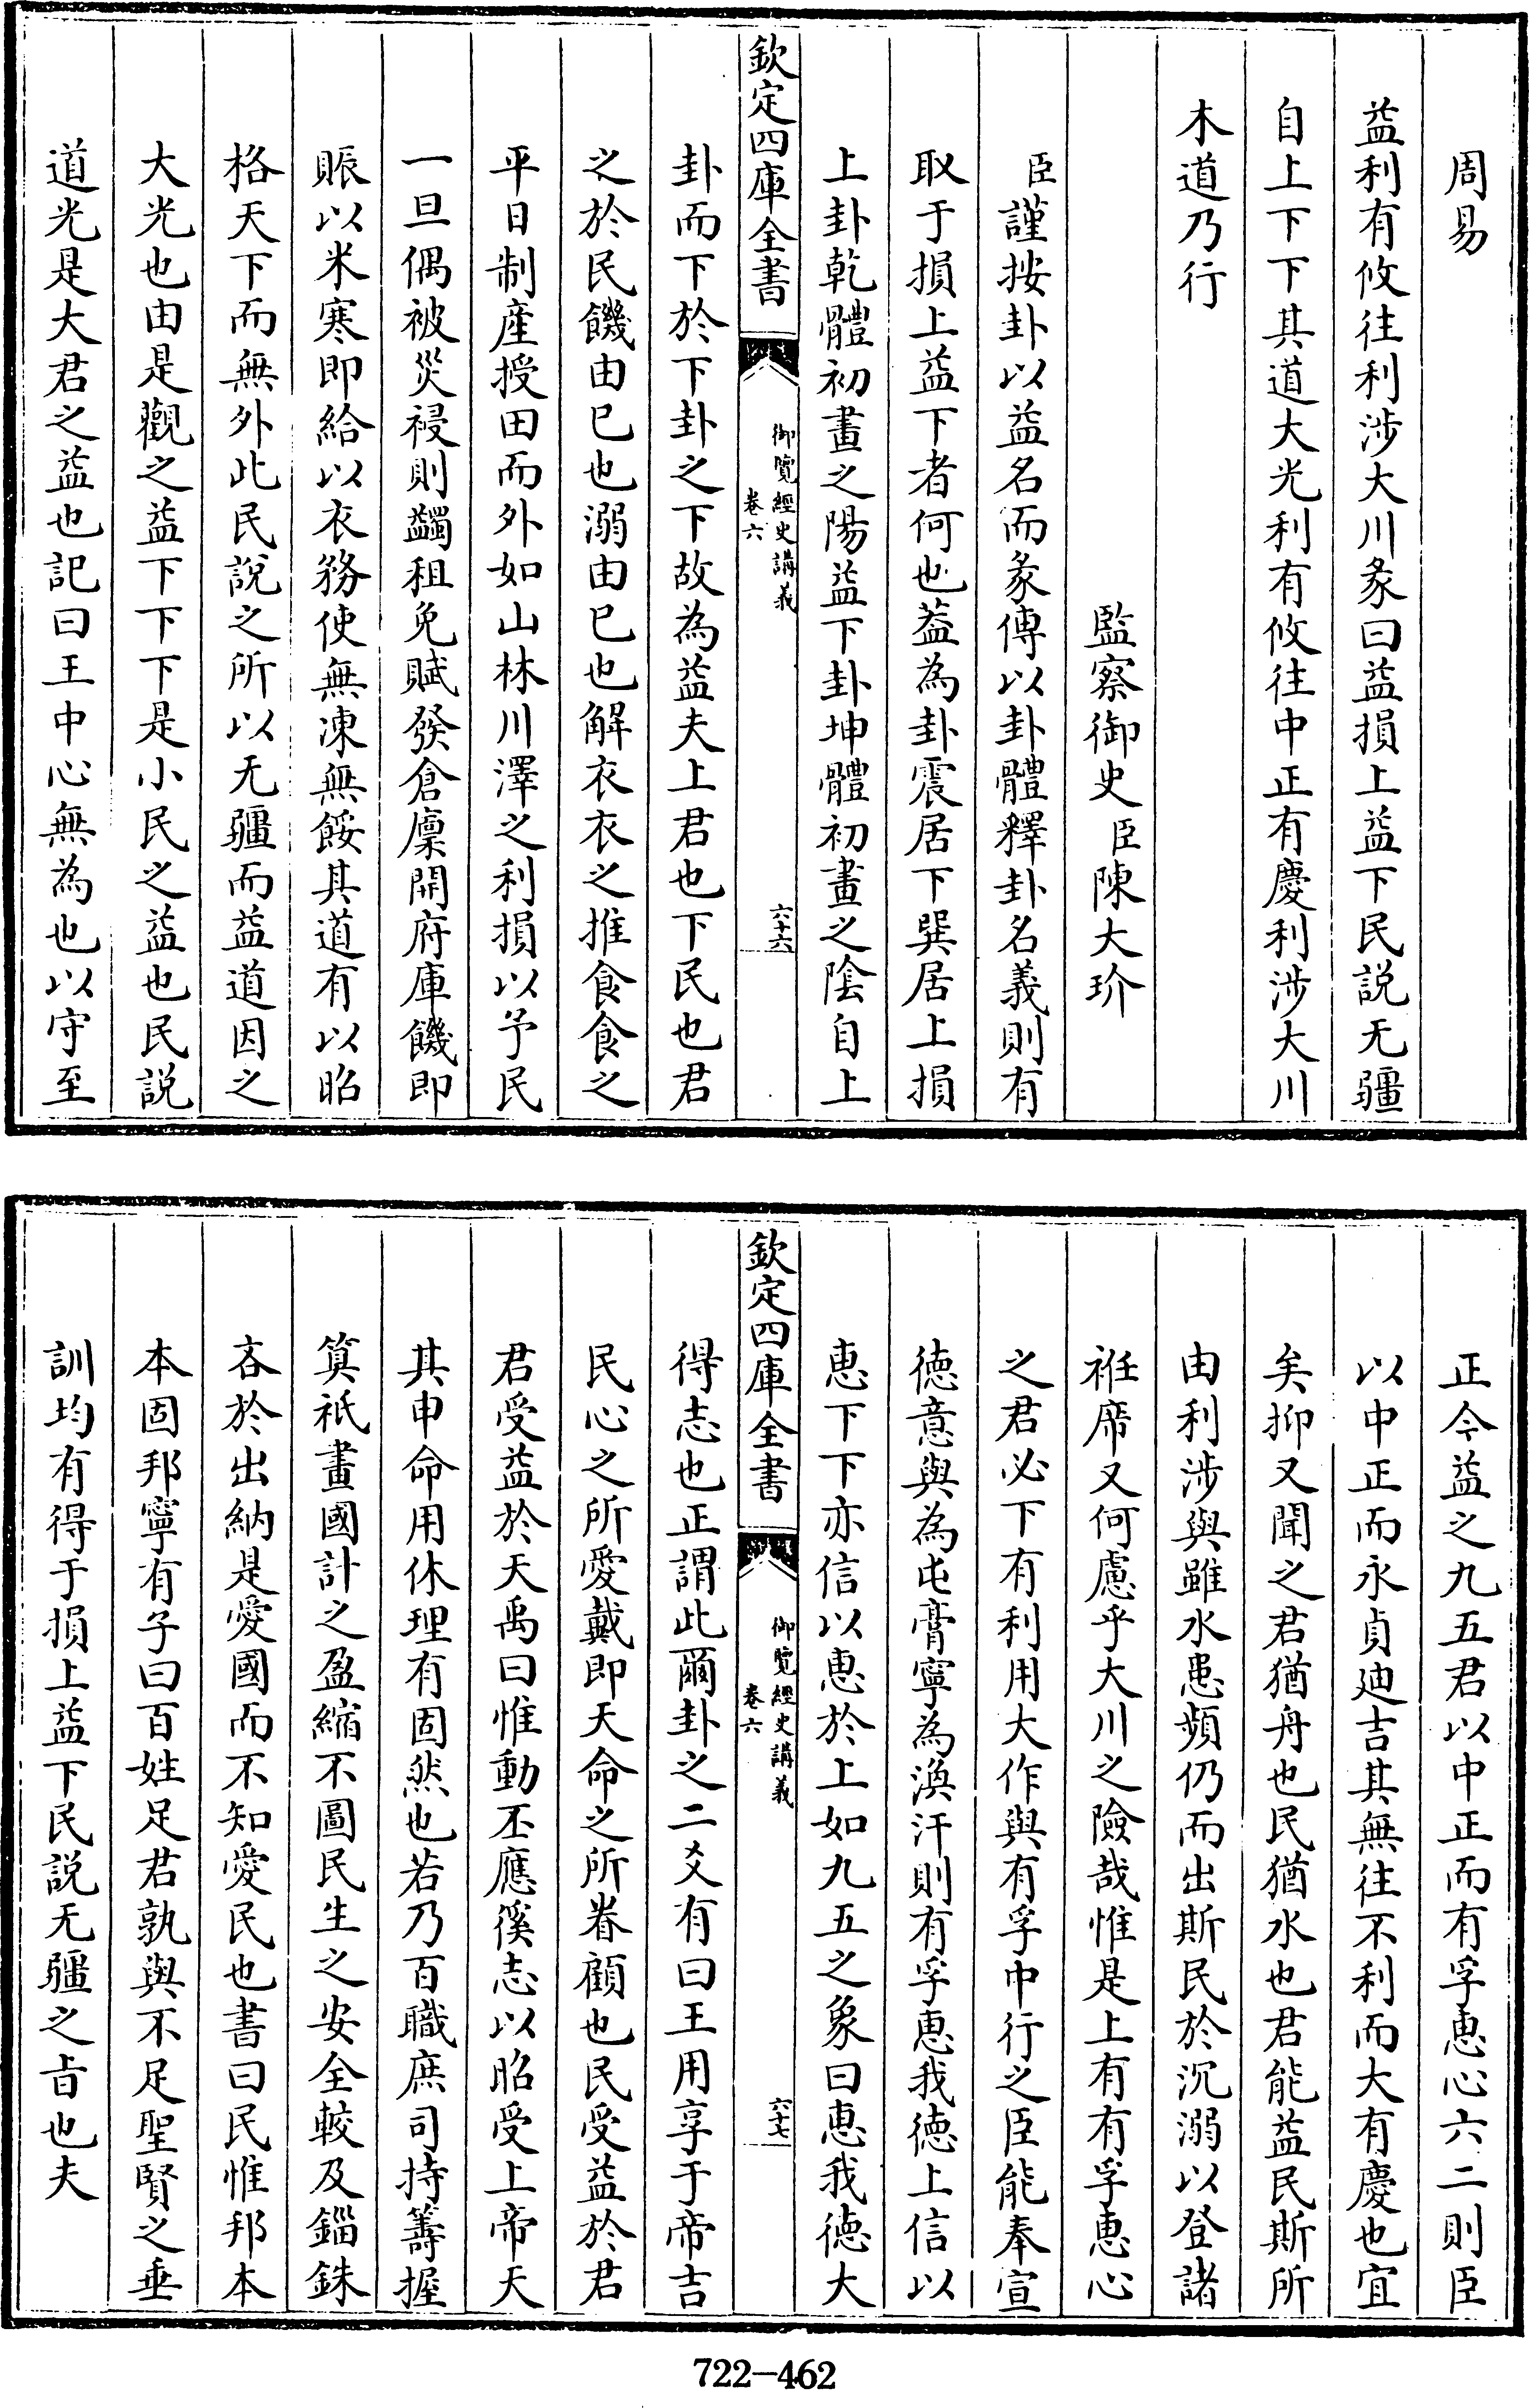 周易
益利有攸往利涉大川彖曰益損上益下民說无疆
自上下下其道大光利有攸往中正有慶利涉大川
木道乃行
監察御史臣陳大玠
臣謹按卦以益名而彖傳以卦體釋卦名義則有
取于損上益下者何也葢為卦震居下巽居上損
上卦乾體初畫之陽益下卦坤體初畫之陰自上
欽定四庫全書
御覽經史講義
卷六
六十六
卦而下於下卦之下故為益夫上君也下民也君
之於民饑由巳也溺由巳也解衣衣之推食食之
平日制産授田而外如山林川澤之利損以予民
一旦偶被災祲則蠲租免賦發倉廪開府庫饑即
賑以米寒即給以衣務使無凍無餒其道有以昭
格天下而無外此民說之所以无疆而益道因之
大光也由是觀之益下下下是小民之益也民説
道光是大君之益也記曰王中心無為也以守至
正今益之九五君以中正而有孚惠心六二則臣
以中正而永貞廸吉其無往不利而大有慶也宜
矣抑又聞之君猶舟也民猶水也君能益民斯所
由利涉與雖水患頻仍而出斯民於沉溺以登諸
袵席又何慮乎大川之險哉惟是上有有孚惠心
之君必下有利用大作與有孚中行之臣能奉宣
德意與為屯膏寧為渙汗則有孚惠我德上信以
惠下下亦信以惠於上如九五之象曰惠我徳大
欽定四庫全書
御覽經史講義
卷六
六十七
得志也正謂此爾卦之二爻有曰王用享于帝吉
民心之所愛戴即天命之所眷顧也民受益於君
君受益於天禹曰惟動丕應徯志以昭受上帝天
其申命用休理有固然也若乃百職庶司持籌握
算祇畫國計之盈縮不圖民生之安全較及錙銖
吝於出納是愛國而不知愛民也書曰民惟邦本
本固邦寧有子曰百姓足君孰與不足聖賢之垂
訓均有得于損上益下民説无疆之㫖也夫
722-462